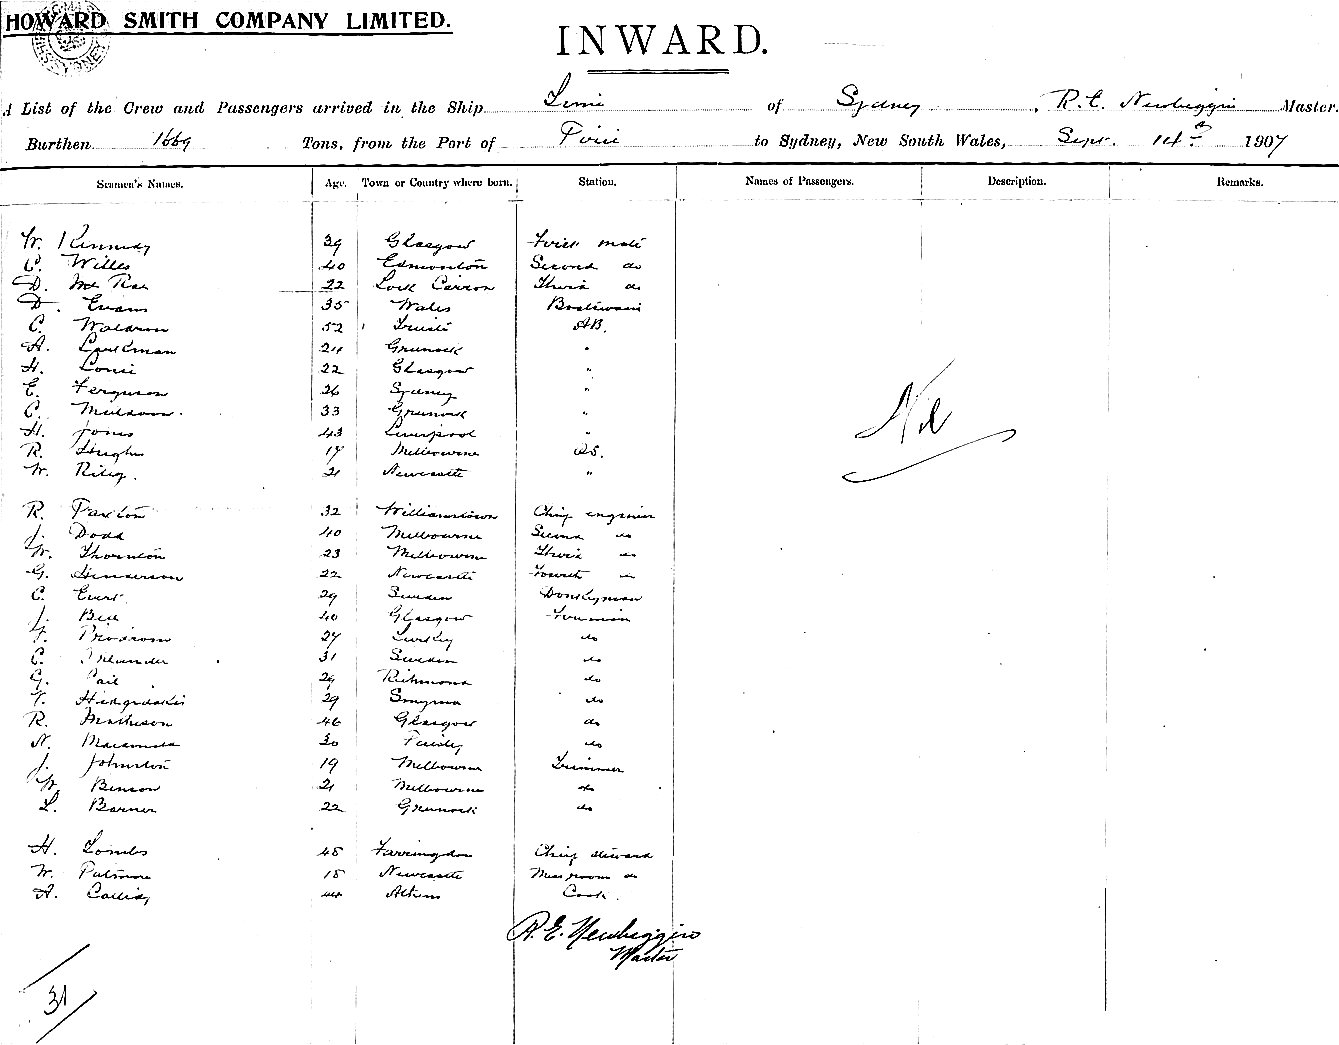 HOWARD SMITH COMPANY LIMITED.
INWARD.
A List of the Crew and Passengers arrived in the Ship of Sydney, R. E. Newbiggin Master.
Burthen 1669 Tons, from the Port of Pirie to Sydney, New South Wales, Sept. 14th 1907
Seamen's Names. Age. Town or Country where born. Station. Names of Passengers. Description. Remarks.
W. Kennedy 39 Glasgow First mate
C. Willes 40 Edmonton Second do
D. McRae 22 Loch Carron Third do
D. Evans 35 Wales Boatswain
C. Waldron 52 AB.
A. 24 Greenock "
H. 22 Glasgow "
E. Ferguson 26 Sydney "
C. Muldoon 33 Greenock "
H. Jones 43 Liverpool "
R. Hughes 17 Melbourne OS.
W. Riley. 21 Newcastle "
Nil
R. Paxton 32 Williamstown Chief engineer
J. Dodd 40 Melbourne Second do
W. Thornton 23 Melbourne Third do
G. Henderson 22 Newcastle Fourth do
C. 29 Sweden Donkeyman
J. Bell 40 Glasgow Fireman
F. Prodrom 27 Turkey do
C. 31 Sweden do
G. 29 Richmond do
29 Smyrna do
R. Matheson 46 Glasgow do
N. 30 do
J. Johnston 19 Melbourne Trimmer
W. Benson 21 Melbourne do
L. Barner 22 Greenock do
H. Lombs 48 Farringdon Chief steward
W. Palmer 18 Newcastle Messroom do
A. 44 Athens Cook.
R. E. Newbiggin
Master
31